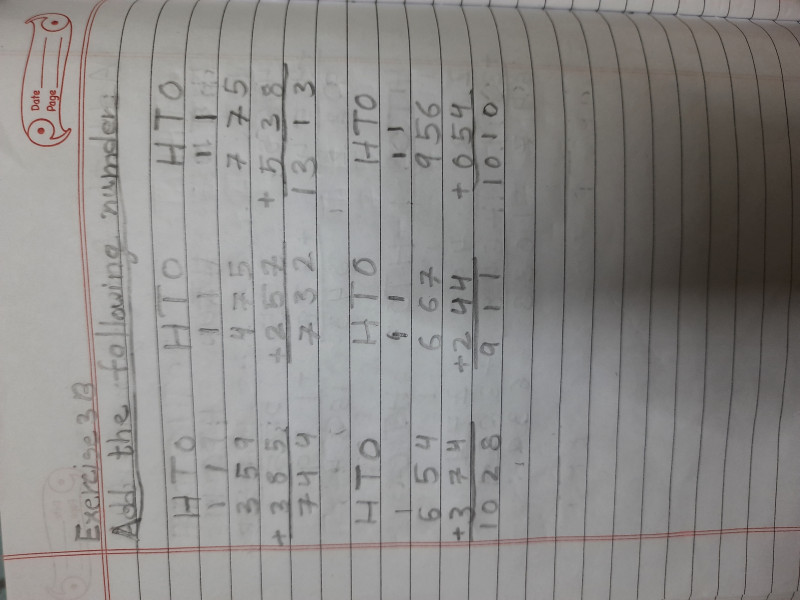 Date
Page
Exercise 3B
Add the following numder:
H T O H T O H T O
1 1 1 11 1
3 5 9 4 7 5 7 7 5
+ 3 8 5 + 2 5 7 + 5 3 8
7 4 4 7 3 2 13 1 3
H T O H T O H T O
1 1 1 1 1
6 5 4 6 6 7 9 5 6
+ 3 7 4 + 2 4 4 + 0 5 4
10 2 8 9 1 1 10 1 0